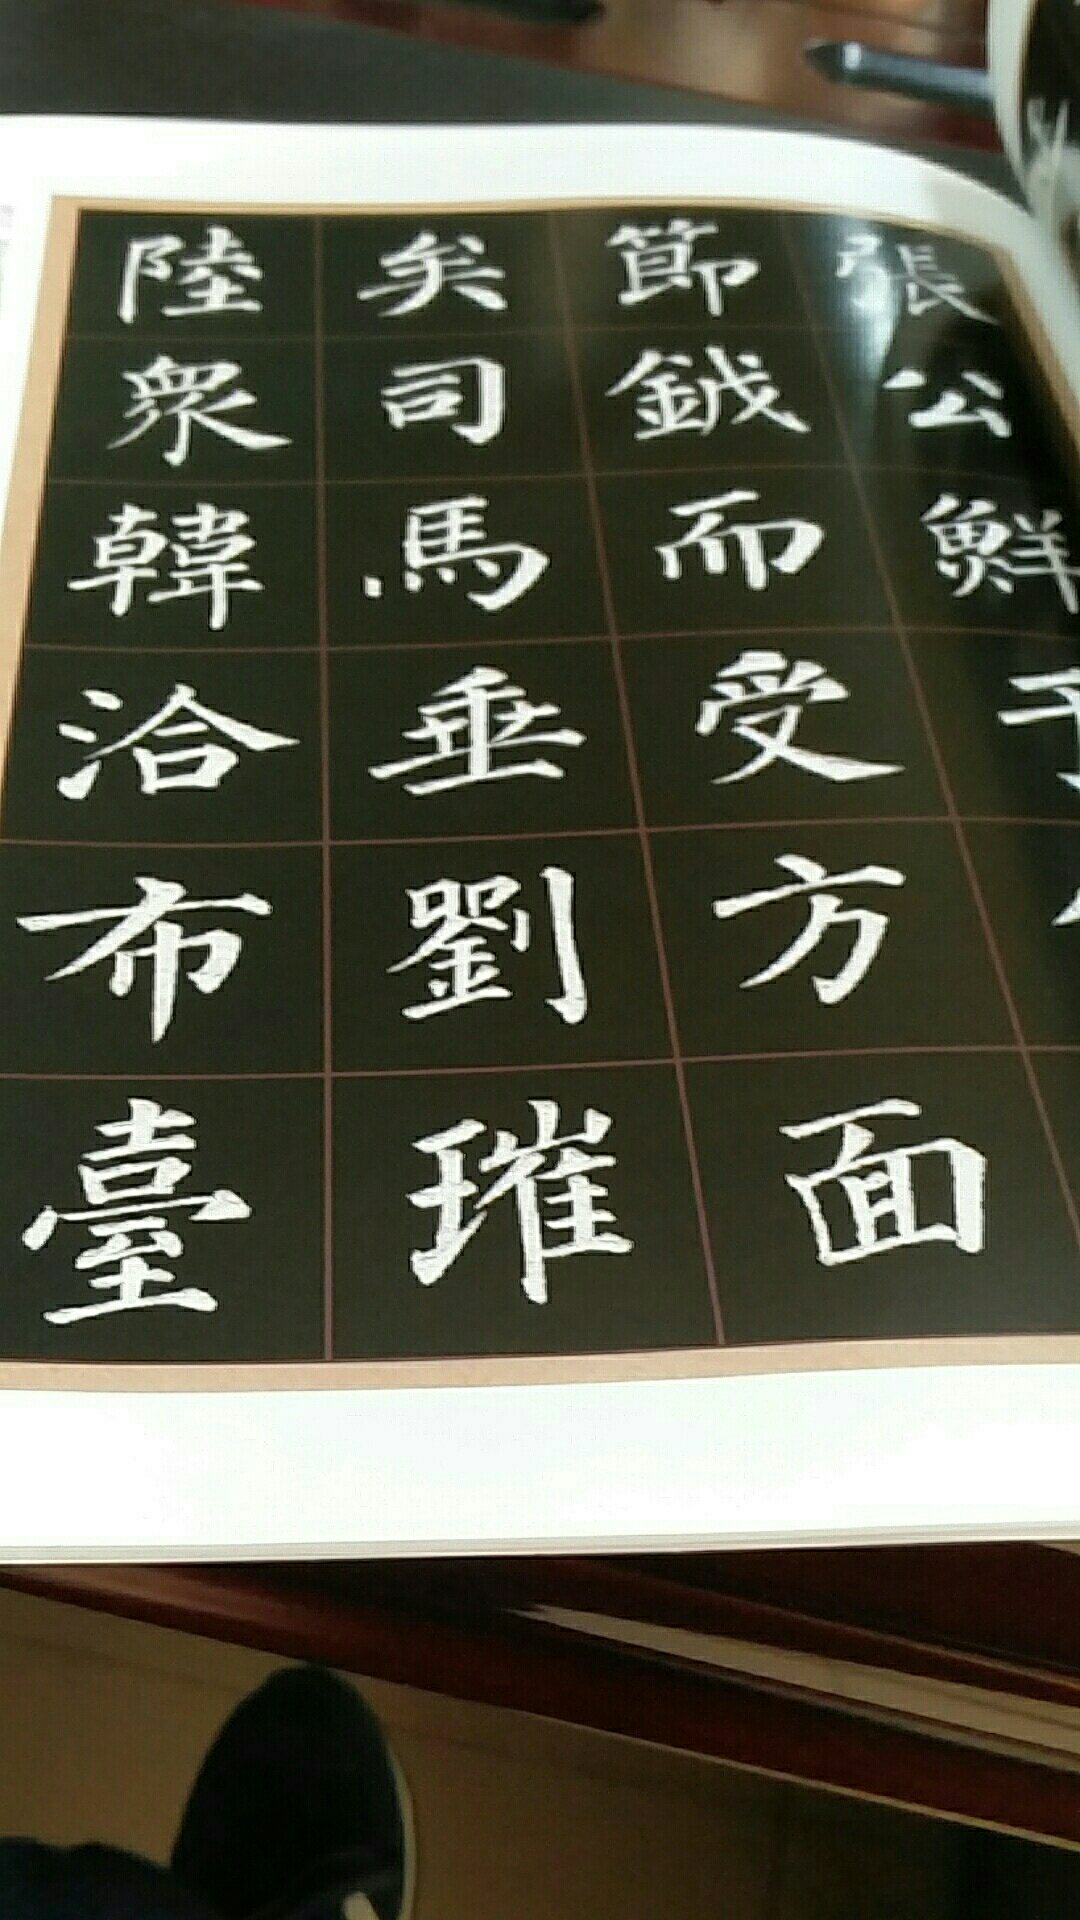 張公鮮
節鉞而受方面
矣司馬垂劉璀
陸眾韓洽布臺